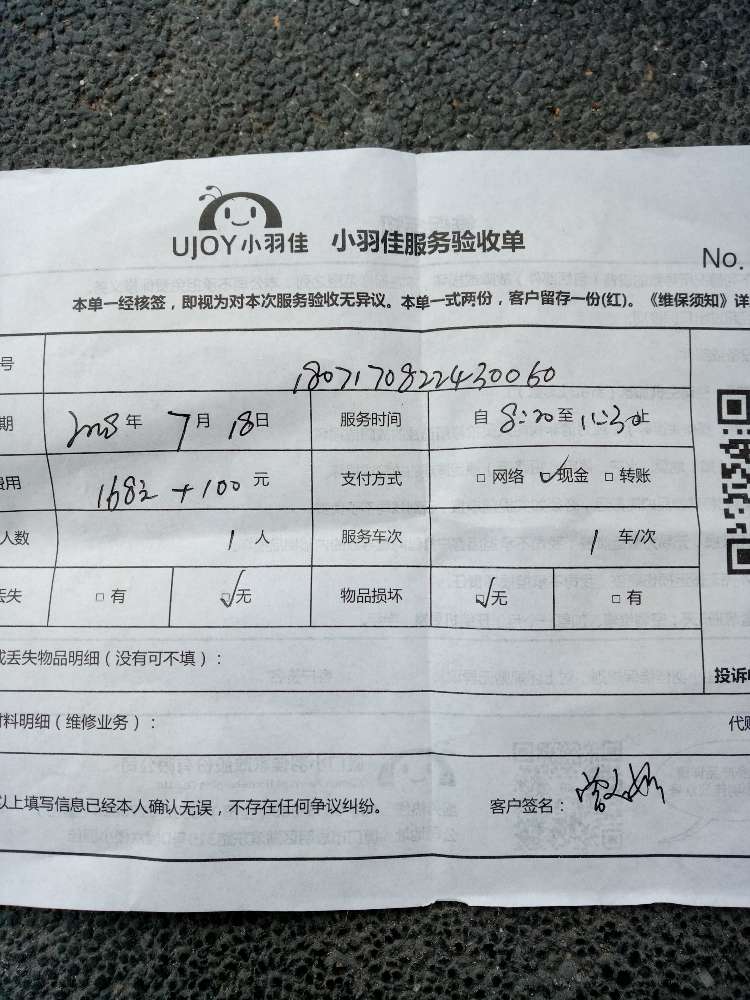 UJOY小羽佳 小羽佳服务验收单
No.
本单一经核签，即视为对本次服务验收无异议。本单一式两份，客户留存一份(红)。《维保须知》详
号 1807170822430060
期 2018年 7月 18日 服务时间 自 8:20至 11:30止
费用 1682 +100 元 支付方式 □ 网络 ☑现金 □ 转账
人数 1 人 服务车次 1 车/次
丢失 □ 有 ☑无 物品损坏 ☑无 □ 有
或丢失物品明细（没有可不填）：
投诉
材料明细（维修业务）： 代购
以上填写信息已经本人确认无误，不存在任何争议纠纷。 客户签名：